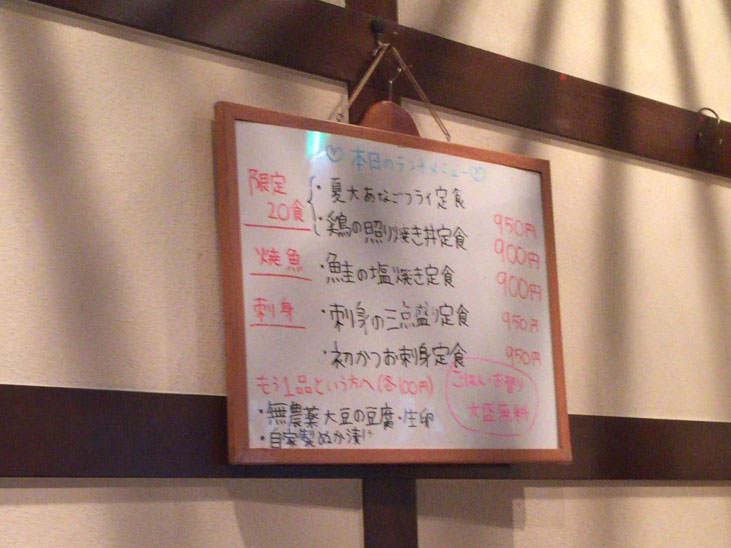 ♡本日のランチメニュー♡
限定20食
・夏大あなごフライ定食 950円
・鶏の照り焼き丼定食 900円
焼魚 ・鮭の塩焼き定食 900円
刺身 ・刺身の三点盛り定食 950円
・初かつお刺身定食 950円
もう1品という方へ(各100円)
・無農薬大豆の豆腐・生卵
・自家製ぬか漬け
ごはん・お替り
大盛無料